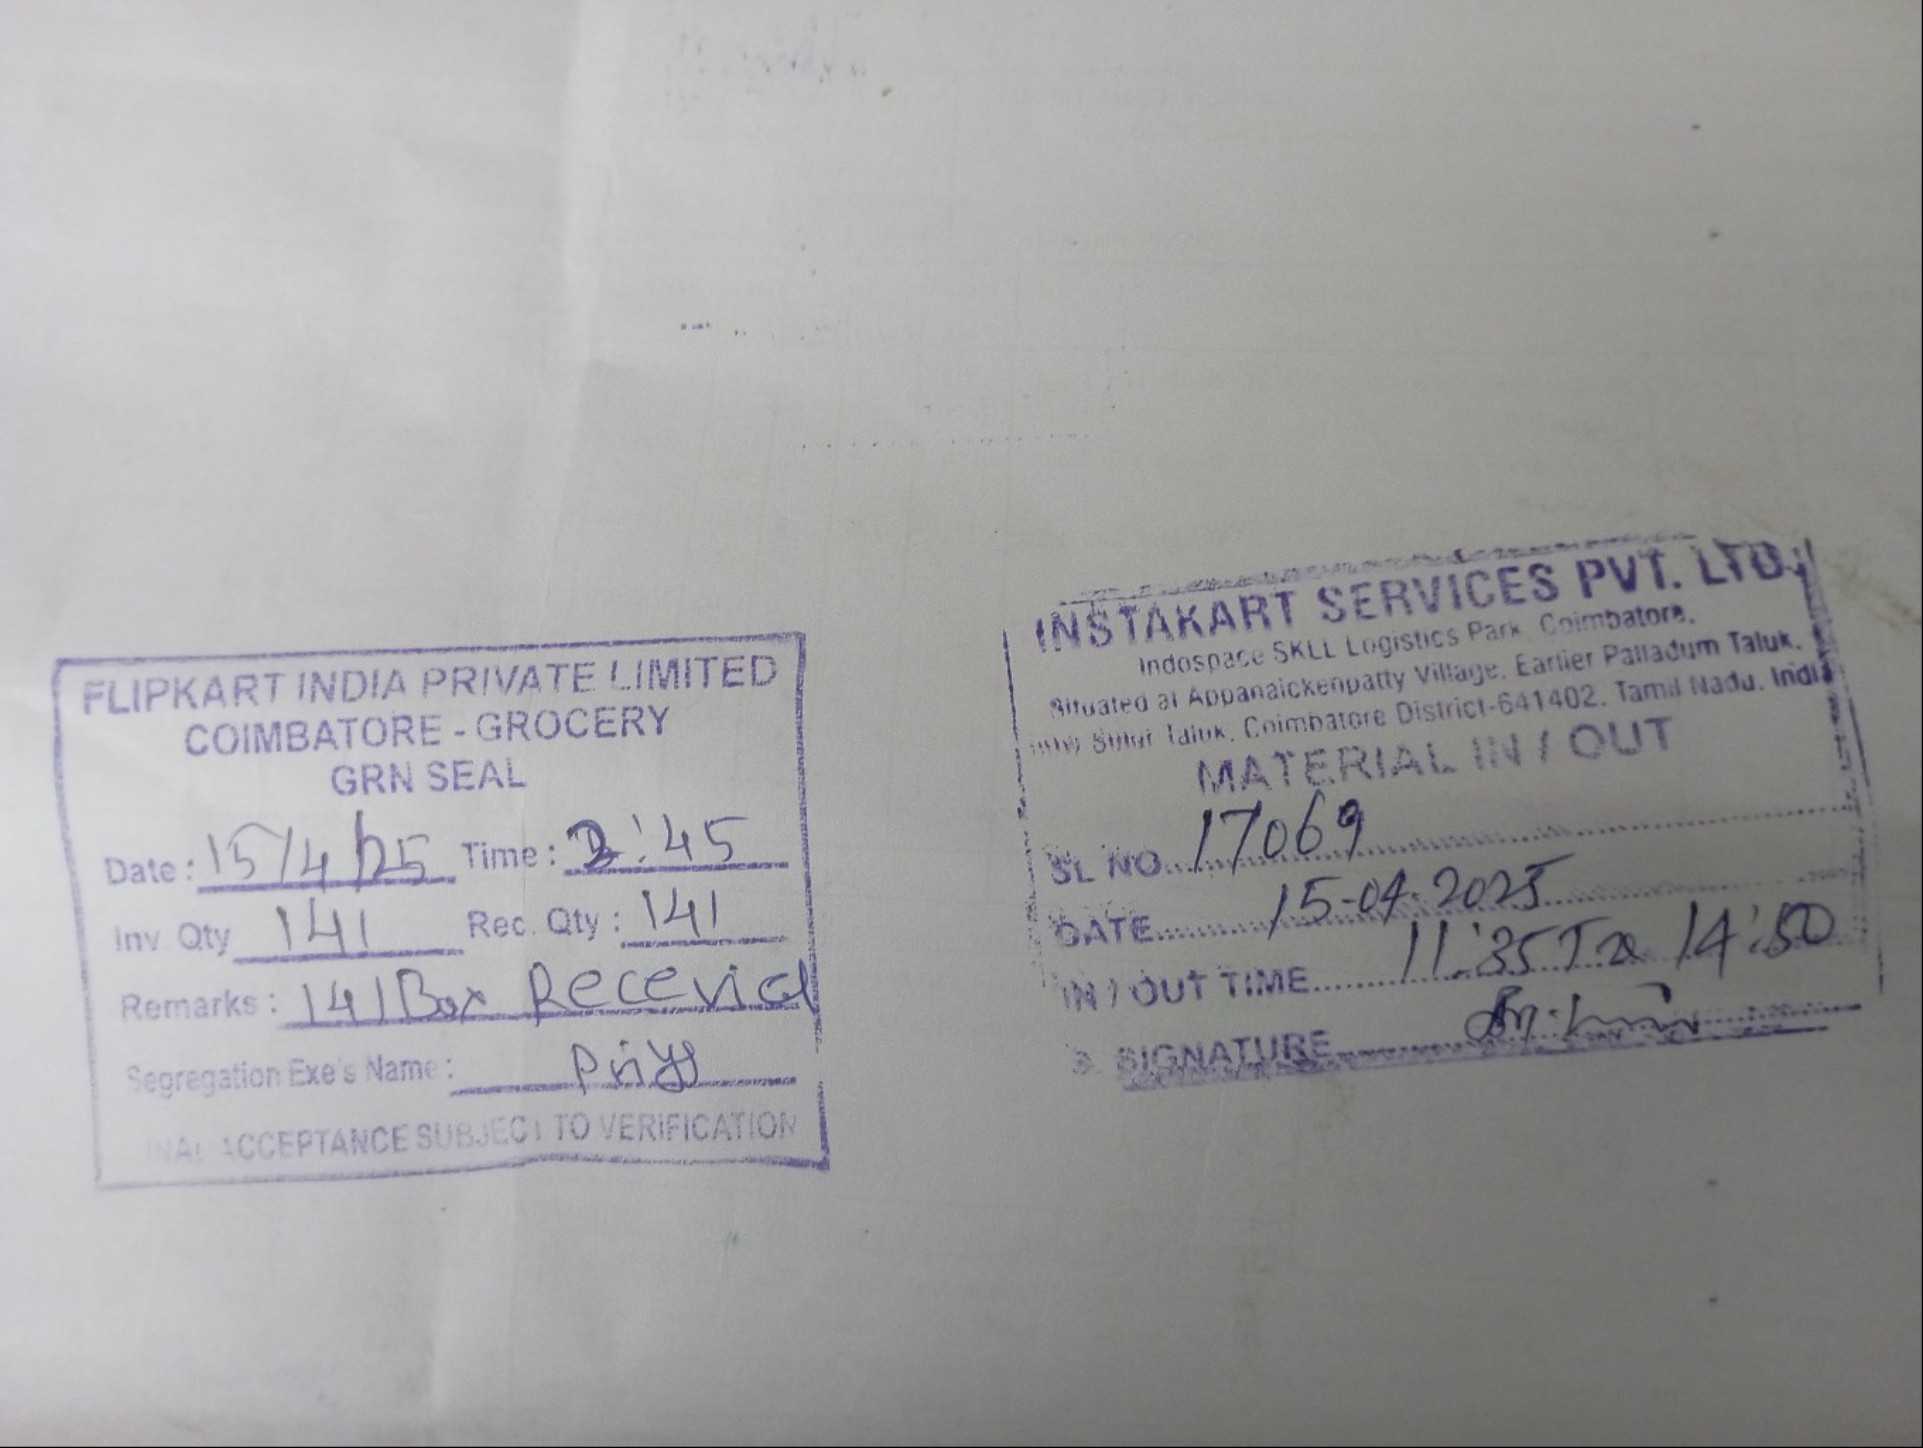 FLIPKART INDIA PRIVATE LIMITED
COIMBATORE - GROCERY
GRN SEAL
Date : 15/4/25 Time : 2:45
Inv Qty 141 Rec. Qty : 141
Remarks : 141 Box Recevied
Segregation Exe's Name : Priya
ACCEPTANCE SUBJECT TO VERIFICATION
INSTAKART SERVICES PVT. LTD.
Indospace SKLL Logistics Park, Coimbatore,
Situated at Appanaickenpatty Village, Earlier Palladum Taluk,
Sulur Taluk, Coimbatore District-641402, Tamil Nadu, India
MATERIAL IN / OUT
SL NO. 17069
DATE 15-04-2025
IN / OUT TIME 11:35 14:50
SIGNATURE